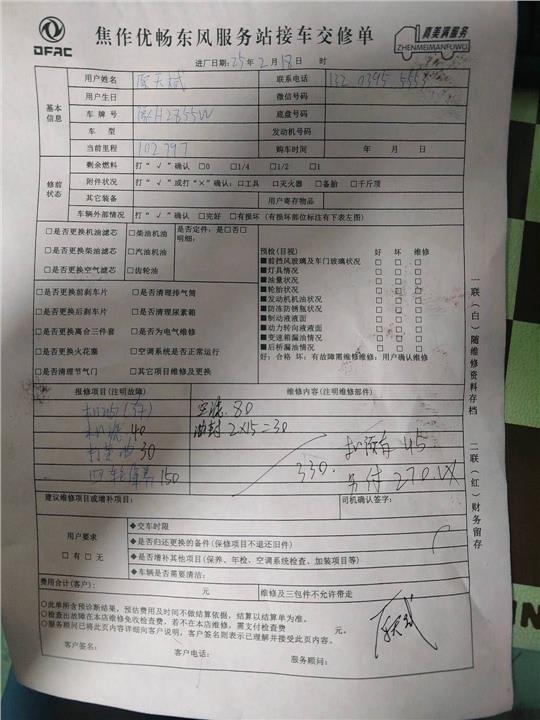 DFAC
焦作优畅东风服务站接车交修单
真美满服务
ZHENMEIMANFUWU
进厂日期:25年2月18日 时
基本信息
用户姓名 联系电话
用户生日 微信号码
车牌号 底盘号码
车型 发动机号码
当前里程 102797 购车时间 年 月 日
修前状态
剩余燃料 打“√”确认 □0 □1/4 □1/2 □1
附件状况 打“√”或打“×”确认:□工具 □灭火器 □备胎 □千斤顶
其它装备 用户寄存物品
车辆外部情况 打“√”确认 □完好 □有损坏(有损坏部位标注有下表左图)
□是否更换机油滤芯 □柴油机油
□是否更换柴油滤芯 □汽油机油
□是否更换空气滤芯 □齿轮油
是否定件:是□否□
明细:
□是否更换前刹车片 □是否清理排气筒
□是否更换后刹车片 □是否清理尿素箱
□是否更换离合三件套 □是否为电气维修
□是否更换火花塞 □空调系统是否正常运行
□是否清理节气门 □其它项目维修及更换
预检(目视) 好 坏 维修
■前挡风玻璃及车门玻璃状况 □ □ □
■灯具情况 □ □ □
■油量状况 □ □ □
■轮胎状况 □ □ □
■发动机机油状况 □ □ □
■防冻防锈瓶状况 □ □ □
■制动液液面 □ □ □
■动力转向液液面 □ □ □
■变速箱漏油情况 □ □ □
■后桥漏油情况 □ □ □
好:合格 坏:有故障需维修维修:用户确认维修
报修项目(注明故障) 维修内容(注明维修部件)
空滤 80
机滤 40 油封 2X15=30
30 45
150 330. 270.
建议维修项目或增补项目: 司机确认签字:
用户要求
□有 □无
◆交车时限
◆是否归还更换的备件(保修项目不退还旧件)
◆是否增补其他项目(保养、年检、空调系统检查、加装项目等)
◆车辆是否需要清洁:
费用合计(客户): 元 维修及三包件不允许带走
○此单所含预诊断结果,预估费用及时间不做结算依据,结算以结算单为准。
○检查出故障在本店维修免收检查费,若不在本店维修,需支付检查费 元。
○服务顾问已将此页内容详细向客户说明,客户签名则表示已理解并接受此页内容。
客户签名: 客户电话: 服务顾问:
一联(白)随维修资料存档
二联(红)财务留存